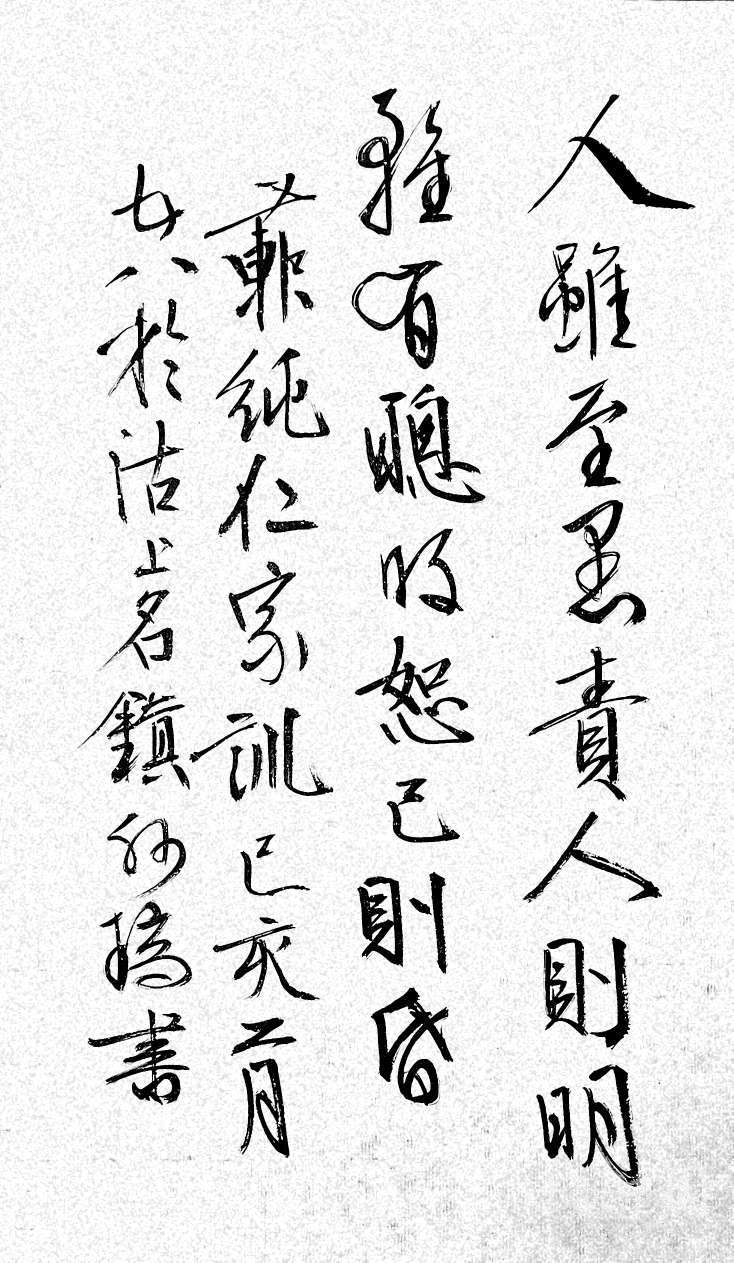 人雖至愚責人則明
雖有聰明恕己則昏
範純仁家訓己亥二月
廿八於沽上名鎮書